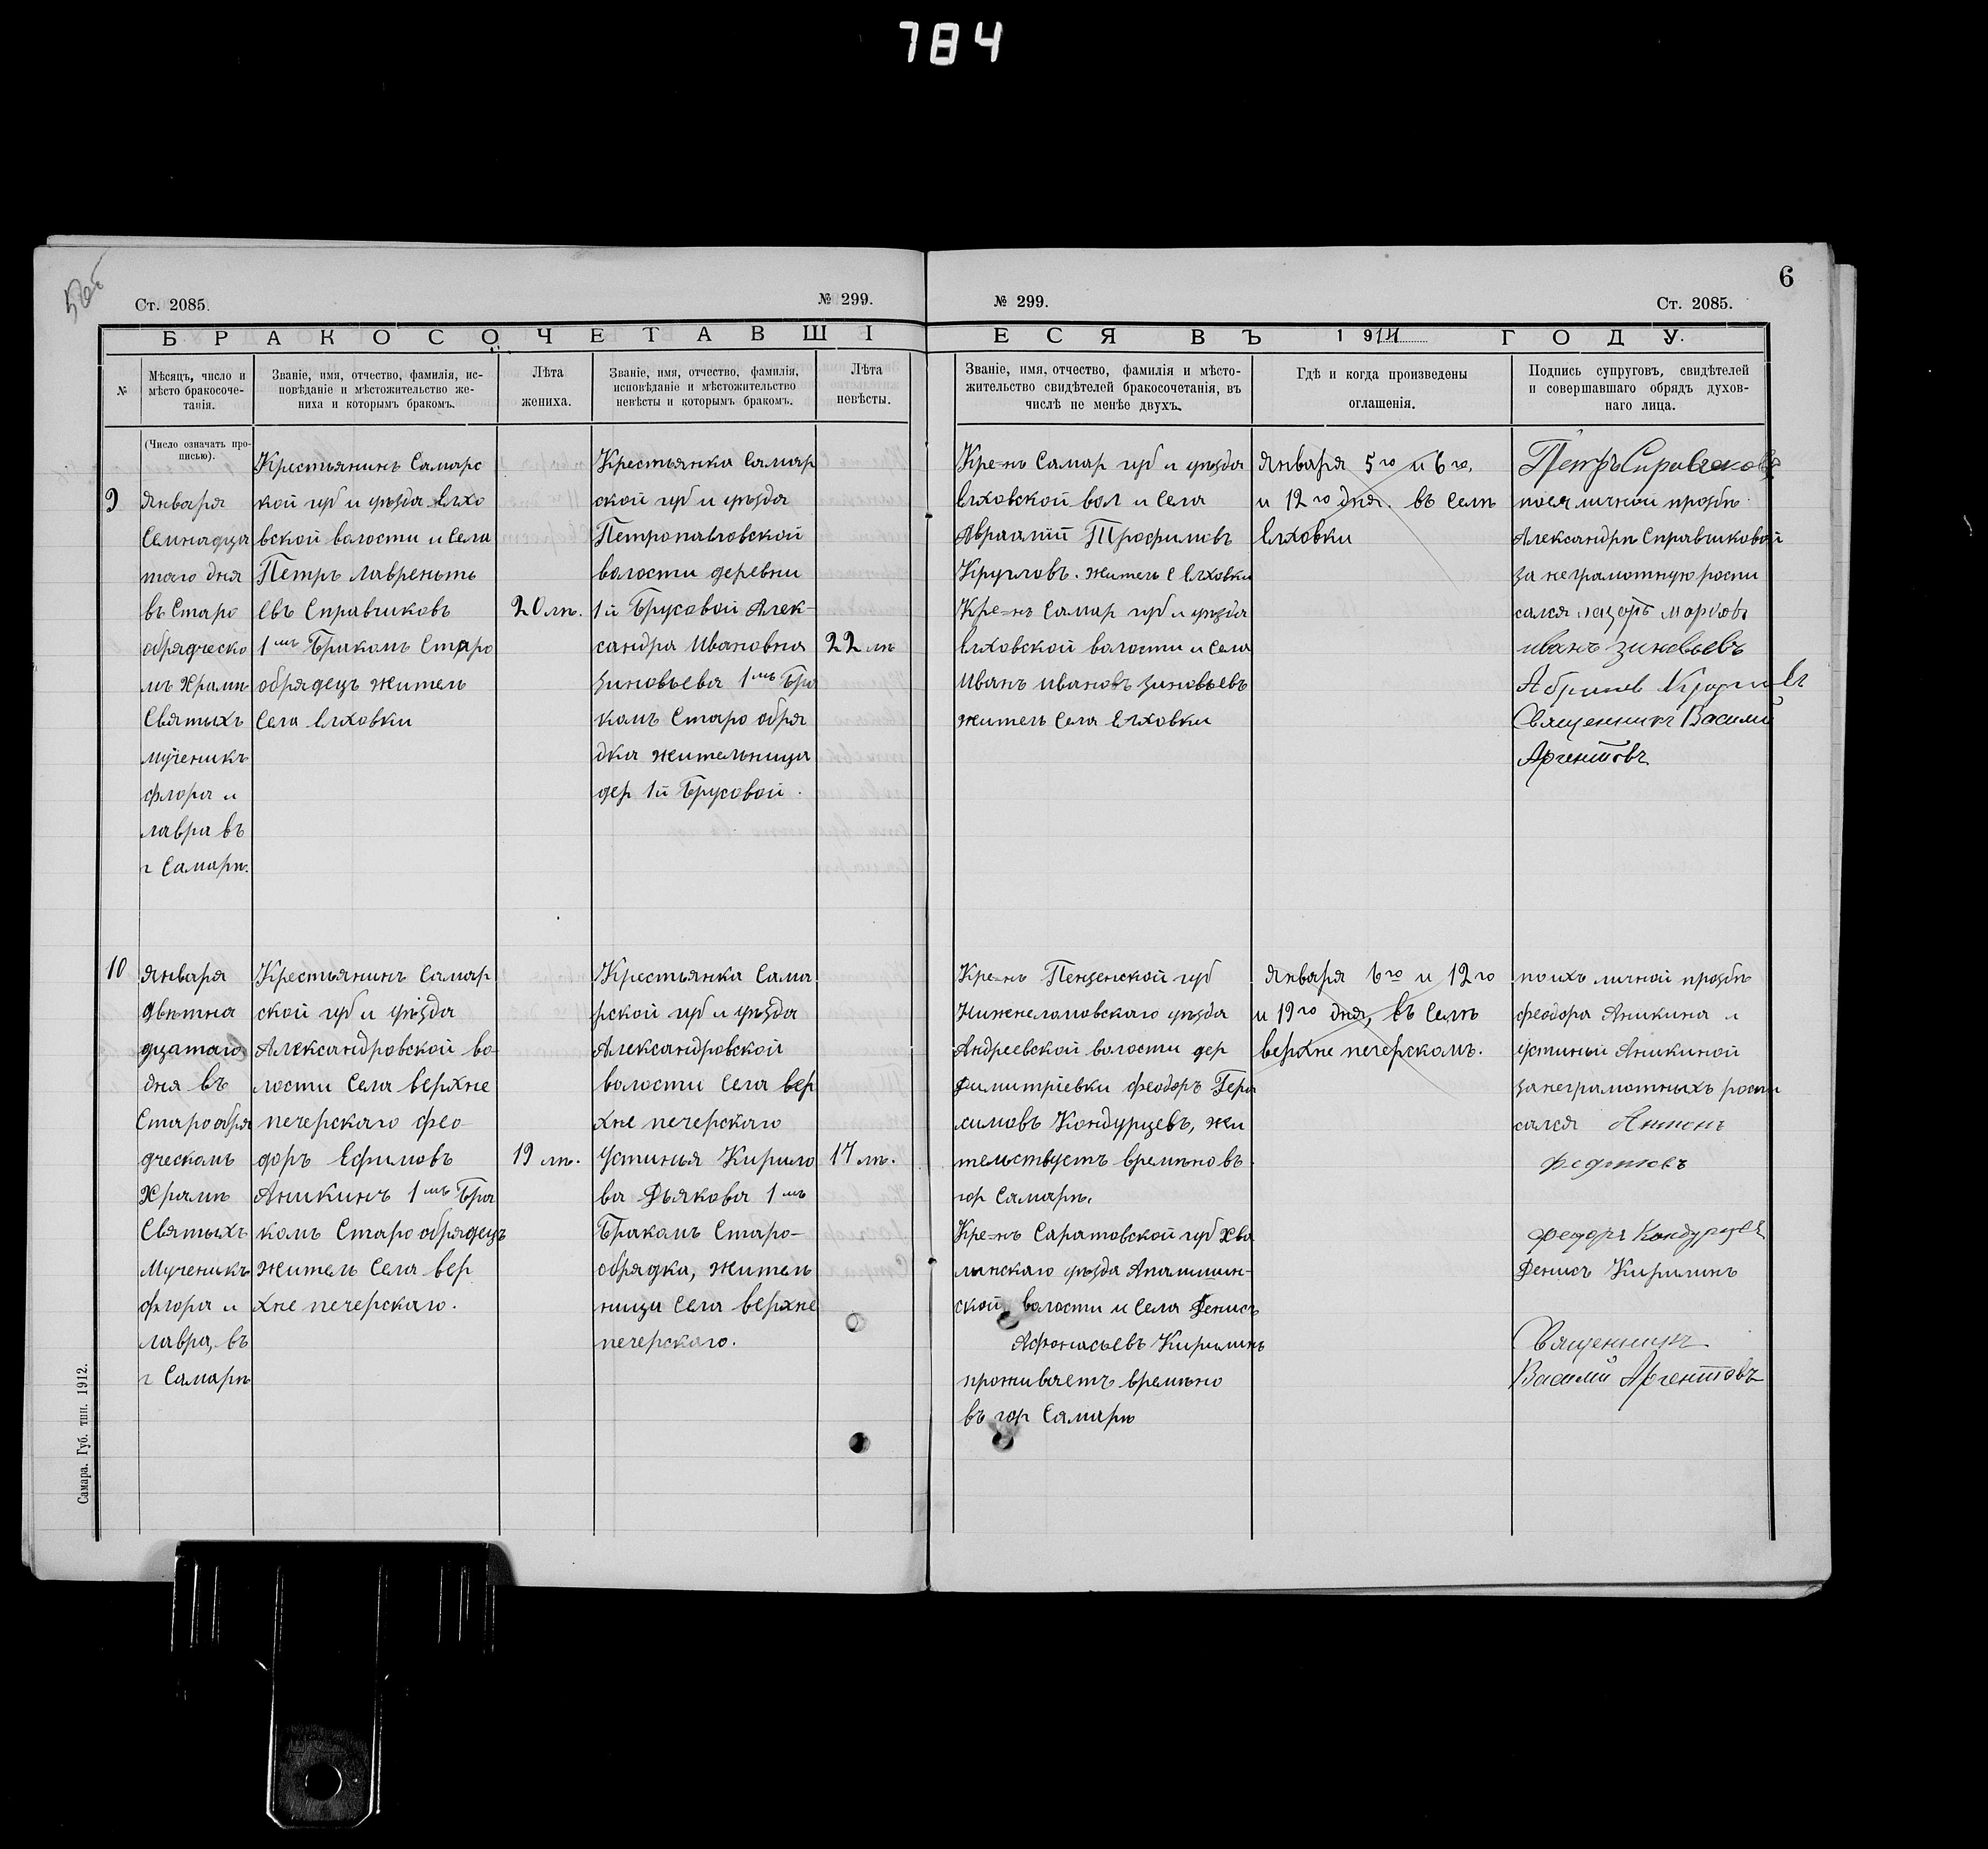 784
6
Ст. 2085.
№ 299.
№ 299.
Ст. 2085.
БРАКОСОЧЕТАВШІ
ЕСЯ ВЪ 1914 ГОДУ.
№
Мѣсяцъ, число и
мѣсто бракосоче-
танія.
Званіе, имя, отчество, фамилія, ис-
повѣданіе и мѣстожительство же-
ниха и которымъ бракомъ.
Лѣта
жениха.
Званіе, имя, отчество, фамилія,
исповѣданіе и мѣстожительство
невѣсты и которымъ бракомъ.
Лѣта
невѣсты.
Званіе, имя, отчество, фамилія и мѣсто-
жительство свидѣтелей бракосочетанія, въ
числѣ не менѣе двухъ.
Гдѣ и когда произведены
оглашенія.
Подпись супруговъ, свидѣтелей
и совершавшаго обрядъ духов-
наго лица.
(Число означать про-
писью).
9
Января
Семнадца
таго дня
въ Старо
обрядческо
мъ Храмѣ
Святыхъ
мученикъ
флора и
лавра въ
г Самарѣ.
Крестьянинъ Самарс
кой губ и уѣзда Елхо
вской волости и села
Петръ Лавреньть
евъ Справчиковъ
1мъ Бракомъ Старо
обрядецъ житель
села Елховки
20 лѣ.
Крестьянка Самар
ской губ и уѣзда
Петропавловской
волости деревни
1й Брусовой Алек-
сандра Ивановна
Зиновьева 1мъ Бра
комъ Старо обря
дка жительница
дер 1й Брусовой.
22 лѣ
Кре=нъ Самар губ и уѣзда
Елховской вол и села
Авраамій Трофимовъ
Кругловъ. житель с Елховки
Кре=нъ Самар губ и уѣзда
Елховской волости и села
Иванъ Ивановъ Зиновьевъ
житель села Елховки
Января 5го и 6го,
и 12го дня. въ селѣ
Елховки
Петръ Справчиковъ
поея личной прозбѣ
Александры Справчиковой
за неграмотную роспи
сался Марковъ
иванъ зиновьевъ
Священникъ Василій
Аргентовъ
10
Января
двѣтна
дцатаго
дня въ
Старообря
дческомъ
Храмѣ
Святыхъ
Мученикъ
флора и
лавра, въ
г Самарѣ
Крестьянинъ Самар
ской губ и уѣзда
Александровской во-
лости села верхне
печерскаго фео-
доръ Ефимовъ
Аникинъ 1мъ Бра
комъ Старо обрядецъ
житель села вер
хне печерскаго.
19 лѣ.
Крестьянка Сама
рской губ и уѣзда
Александровской
волости села вер
хне печерскаго
Устинья Кирило
ва Дьякова 1мъ
Бракомъ Старо-
обрядка, житель
ница села верхне
печерскаго.
17 лѣ.
Кре=нъ Пензенской губ
Нижнеломовскаго уѣзда
Андреевской волости дер
Димитріевки феодоръ Гера
симовъ Кондурцевъ, жи
тельствуетъ времѣно въ
гор Самарѣ.
Кре=нъ Саратовской губ Хва
лынскаго уѣзда Апалишин-
ской волости и села Денисъ
Афонасьевъ Кирилинъ
проживаетъ времѣно
въ гор Самарѣ
Января 6го и 12го
и 19го дня, въ селѣ
верхне печерскомъ.
по ихъ личной прозбѣ
феодора Аникина и
устиньи Аникиной
за неграмотныхъ роспи
сался Антонъ
федотовъ
федоръ Кондурцевъ
Денисъ Кирилинъ
Священникъ
Василій Аргентовъ
Самара. Губ. тип. 1912.